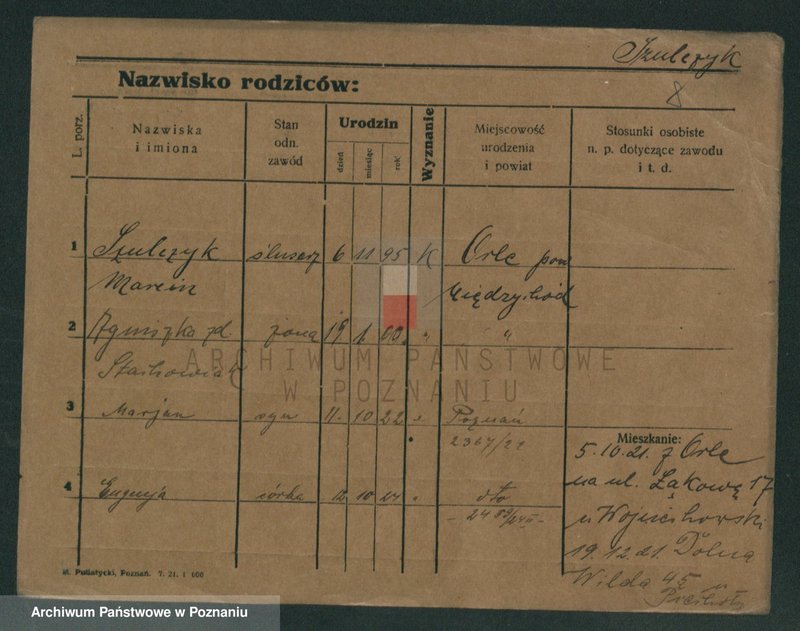 Szulczyk
8
Nazwisko rodziców:
L. porz.
Nazwiska
i imiona
Stan
odn.
zawód
Urodzin
dzień
miesiąc
rok
Wyznanie
Miejscowość
urodzenia
i powiat
Stosunki osobiste
n. p. dotyczące zawodu
i t. d.
1 Szulczyk ślusarz 6 11 95 K Orle pow
Marcin Międzychód
2 Agnieszka zd żona 19 1 00 " "
Stachowiak
ARCHIWUM PAŃSTWOWE
W POZNANIU
3 Marjan syn 11 10 22 " Poznań
2367/22
4 Eugenja córka 12 10 24 " dto
- 2489/24 II -
Mieszkanie:
5.10.21. z Orle
na ul. Łąkową 17
u Wojciechowski
19.12.21. Dolna
Wilda 45
M. Putiatycki, Poznań. 7. 21. 1 600
Archiwum Państwowe w Poznaniu